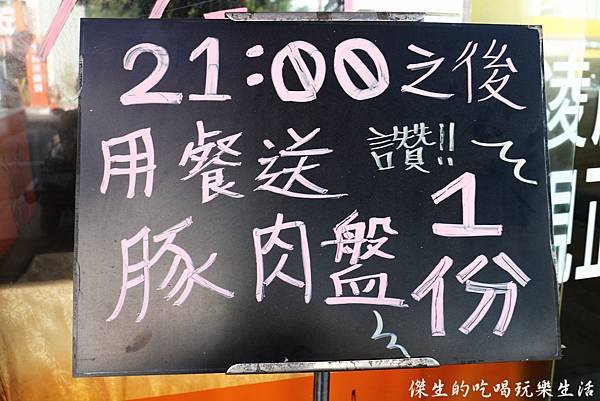 21:00之後
用餐送 讚!!
豚肉盤1份
傑生的吃喝玩樂生活